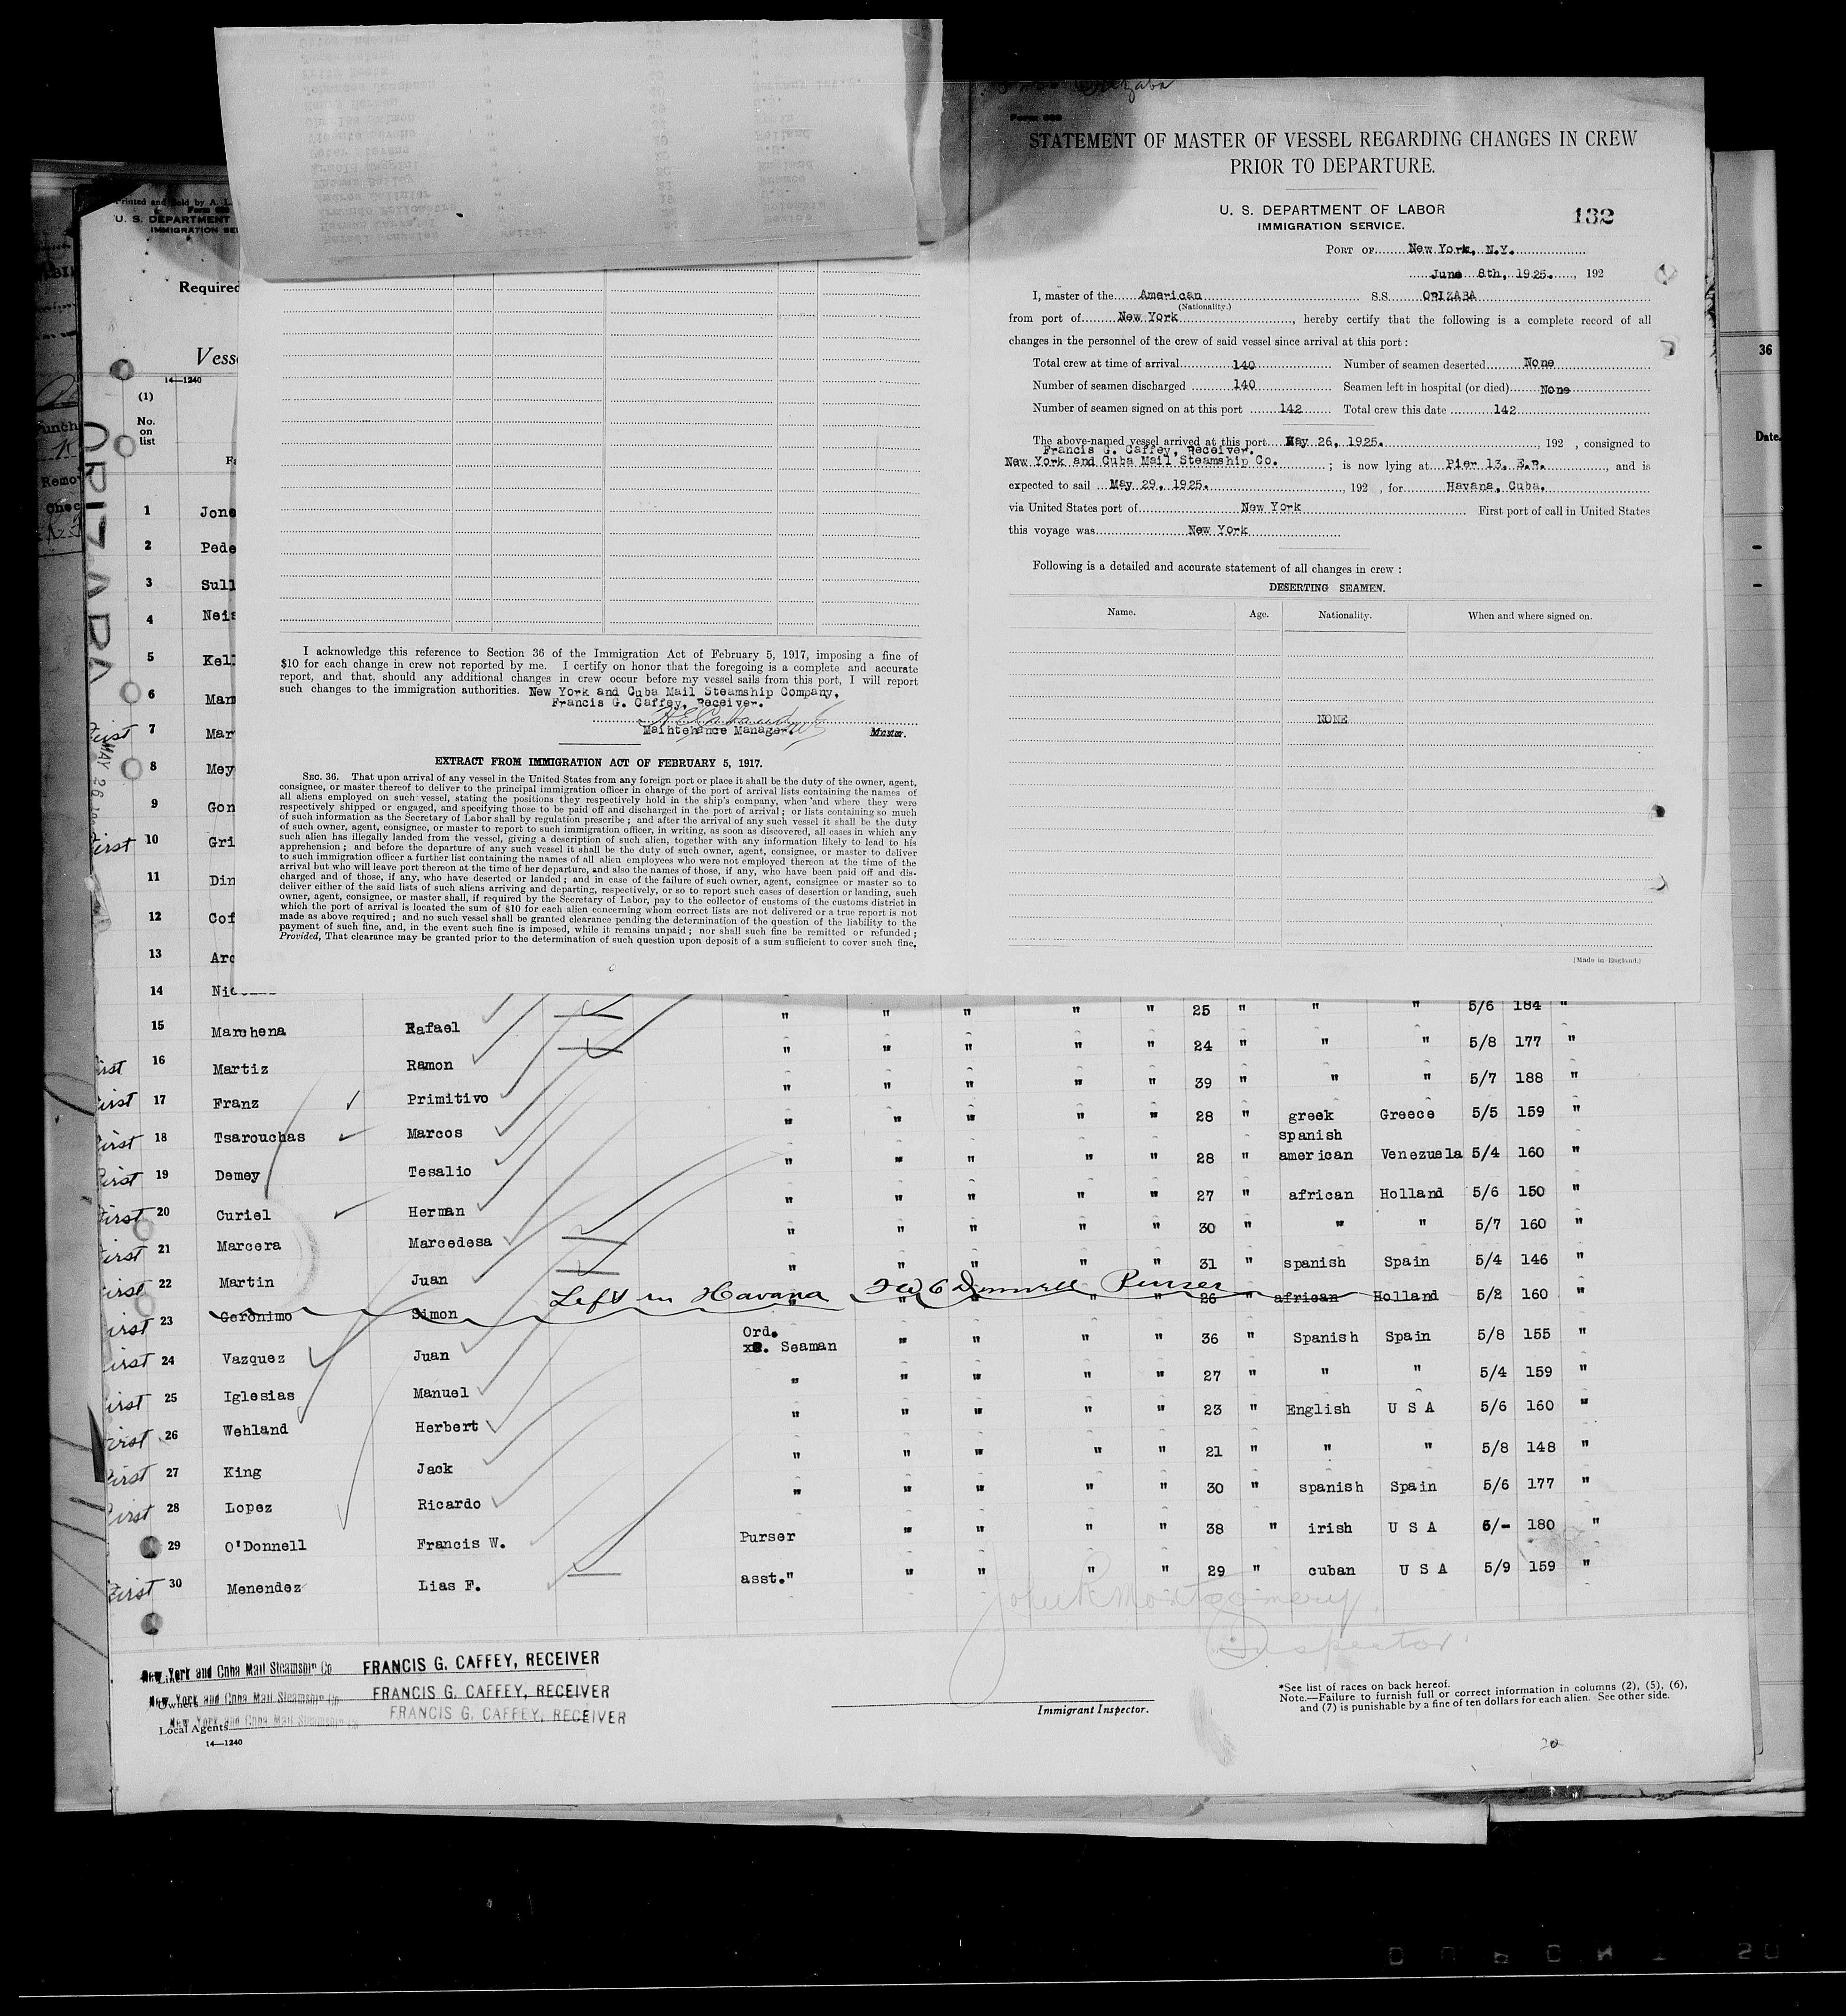 STATEMENT OF MASTER OF VESSEL REGARDING CHANGES IN CREW
PRIOR TO DEPARTURE.
U. S. DEPARTMENT OF LABOR
IMMIGRATION SERVICE.
132
PORT OF New York, N.Y.
June 8th, 1925. , 192
I, master of the American S.S. ORIZABA
(Nationality.)
from port of New York , hereby certify that the following is a complete record of all
changes in the personnel of the crew of said vessel since arrival at this port :
Total crew at time of arrival 140 Number of seamen deserted None
Number of seamen discharged 140 Seamen left in hospital (or died) None
Number of seamen signed on at this port 142 Total crew this date 142
The above-named vessel arrived at this port May 26, 1925. , 192 , consigned to
Francis G. Caffey, Receiver.
New York and Cuba Mail Steamship Co. ; is now lying at Pier 13, E.R. , and is
expected to sail May 29, 1925. , 192 , for Havana, Cuba.
via United States port of New York First port of call in United States
this voyage was New York
Following is a detailed and accurate statement of all changes in crew :
DESERTING SEAMEN.
Name. Age. Nationality. When and where signed on.
NONE
(Made in England.)
I acknowledge this reference to Section 36 of the Immigration Act of February 5, 1917, imposing a fine of
$10 for each change in crew not reported by me. I certify on honor that the foregoing is a complete and accurate
report, and that, should any additional changes in crew occur before my vessel sails from this port, I will report
such changes to the immigration authorities. New York and Cuba Mail Steamship Company,
Francis G. Caffey, Receiver.
Maintenance Manager. Master.
EXTRACT FROM IMMIGRATION ACT OF FEBRUARY 5, 1917.
SEC. 36. That upon arrival of any vessel in the United States from any foreign port or place it shall be the duty of the owner, agent,
consignee, or master thereof to deliver to the principal immigration officer in charge of the port of arrival lists containing the names of
all aliens employed on such vessel, stating the positions they respectively hold in the ship's company, when and where they were
respectively shipped or engaged, and specifying those to be paid off and discharged in the port of arrival ; or lists containing so much
of such information as the Secretary of Labor shall by regulation prescribe ; and after the arrival of any such vessel it shall be the duty
of such owner, agent, consignee, or master to report to such immigration officer, in writing, as soon as discovered, all cases in which any
such alien has illegally landed from the vessel, giving a description of such alien, together with any information likely to lead to his
apprehension ; and before the departure of any such vessel it shall be the duty of such owner, agent, consignee, or master to deliver
to such immigration officer a further list containing the names of all alien employees who were not employed thereon at the time of the
arrival but who will leave port thereon at the time of her departure, and also the names of those, if any, who have been paid off and dis-
charged and of those, if any, who have deserted or landed ; and in case of the failure of such owner, agent, consignee or master so to
deliver either of the said lists of such aliens arriving and departing, respectively, or so to report such cases of desertion or landing, such
owner, agent, consignee, or master shall, if required by the Secretary of Labor, pay to the collector of customs of the customs district in
which the port of arrival is located the sum of $10 for each alien concerning whom correct lists are not delivered or a true report is not
made as above required ; and no such vessel shall be granted clearance pending the determination of the question of the liability to the
payment of such fine, and, in the event such fine is imposed, while it remains unpaid ; nor shall such fine be remitted or refunded ;
Provided, That clearance may be granted prior to the determination of such question upon deposit of a sum sufficient to cover such fine,
Printed and Sold by A. L.
U. S. DEPARTMENT
IMMIGRATION SER
Required
Vesse
14—1240
(1)
No.
on
list
ORIZABA
36
Date.
1 Jone
2 Pede
3 Sull
4 Neis
5 Kell
6 Man
first 7 Mar
8 Mey
9 Gon
First 10 Gri
11 Din
12 Cof
13 Arc
14 Nic
" " " " " 25 " " " 5/6 184 "
15 Marchena Rafael " " " " " 24 " " " 5/8 177 "
First 16 Martiz Ramon " " " " " 39 " " " 5/7 188 "
First 17 Franz Primitivo " " " " " 28 " greek Greece 5/5 159 "
First 18 Tsarouchas Marcos " " " " " 28 " spanish american Venezuela 5/4 160 "
First 19 Demey Tesalio " " " " " 27 " african Holland 5/6 150 "
First 20 Curiel Herman " " " " " 30 " " " 5/7 160 "
First 21 Marcera Marcedesa " " " " " 31 " spanish Spain 5/4 146 "
First 22 Martin Juan
Left in Havana F W O'Donnell Purser
First 23 Geronimo Simon " " " " " 26 " african Holland 5/2 160 "
First 24 Vazquez Juan Ord. Seaman " " " " 36 " Spanish Spain 5/8 155 "
First 25 Iglesias Manuel " " " " " 27 " " " 5/4 159 "
First 26 Wehland Herbert " " " " " 23 " English U S A 5/6 160 "
First 27 King Jack " " " " " 21 " " " 5/8 148 "
First 28 Lopez Ricardo " " " " " 30 " spanish Spain 5/6 177 "
29 O'Donnell Francis W. Purser " " " " 38 " irish U S A 6/- 180 "
First 30 Menendez Lias F. asst." " " " " 29 " cuban U S A 5/9 159 "
John R Montgomery
Inspector
New York and Cuba Mail Steamship Co FRANCIS G. CAFFEY, RECEIVER
Owners New York and Cuba Mail Steamship Co FRANCIS G. CAFFEY, RECEIVER
Local Agents New York and Cuba Mail Steamship Co FRANCIS G. CAFFEY, RECEIVER
14—1240
Immigrant Inspector.
*See list of races on back hereof.
Note.—Failure to furnish full or correct information in columns (2), (5), (6),
and (7) is punishable by a fine of ten dollars for each alien. See other side.
20